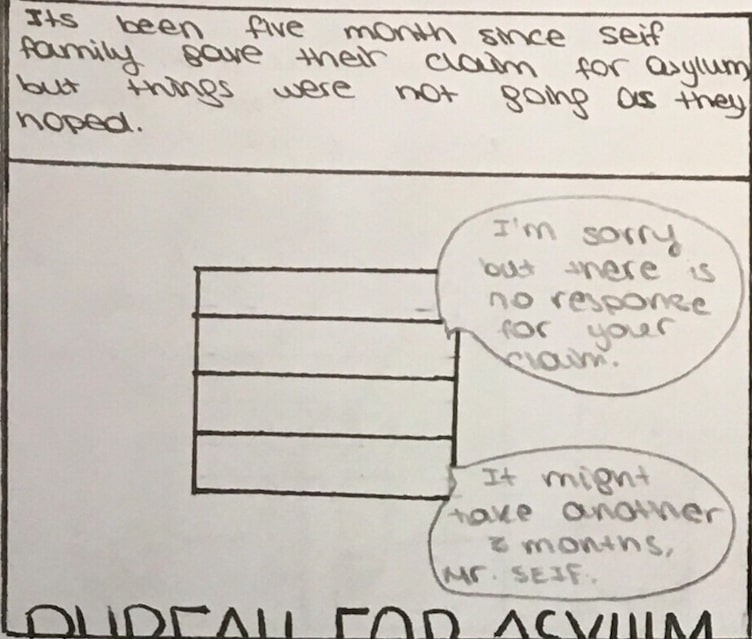 Its been five month since seif
family gave their claim for asylum
but things were not going as they
hoped.
I'm sorry
but there is
no response
for your
claim.
It might
take another
months,
Mr. SEIF.
BUREAU FOR ASYLUM